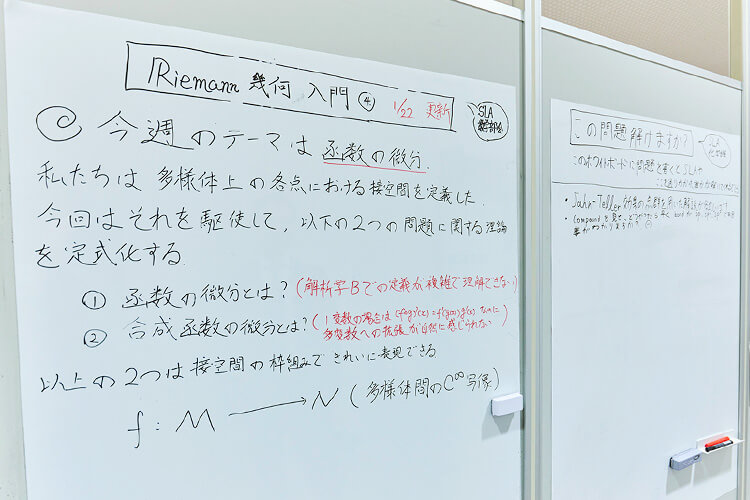 Riemann 幾何 入門 ④ 1/22 更新
SLA
今週のテーマは 函数の微分.
私たちは 多様体上の各点における接空間を定義した.
今回はそれを駆使して, 以下の2つの問題に関する理論
を定式化する.
① 函数の微分とは? (解析学Bでの定義が複雑で理解できない)
② 合成函数の微分とは? (1変数の場合は (f∘g)'(x) = f'(g(x))g'(x) なのに
多変数への拡張が自然に感じられない)
以上の2つは 接空間の枠組みで きれいに表現できる
f: M → N (多様体間のC∞写像)
この問題 解けますか?
SLA
このホワイトボードに問題を書くとSLAや